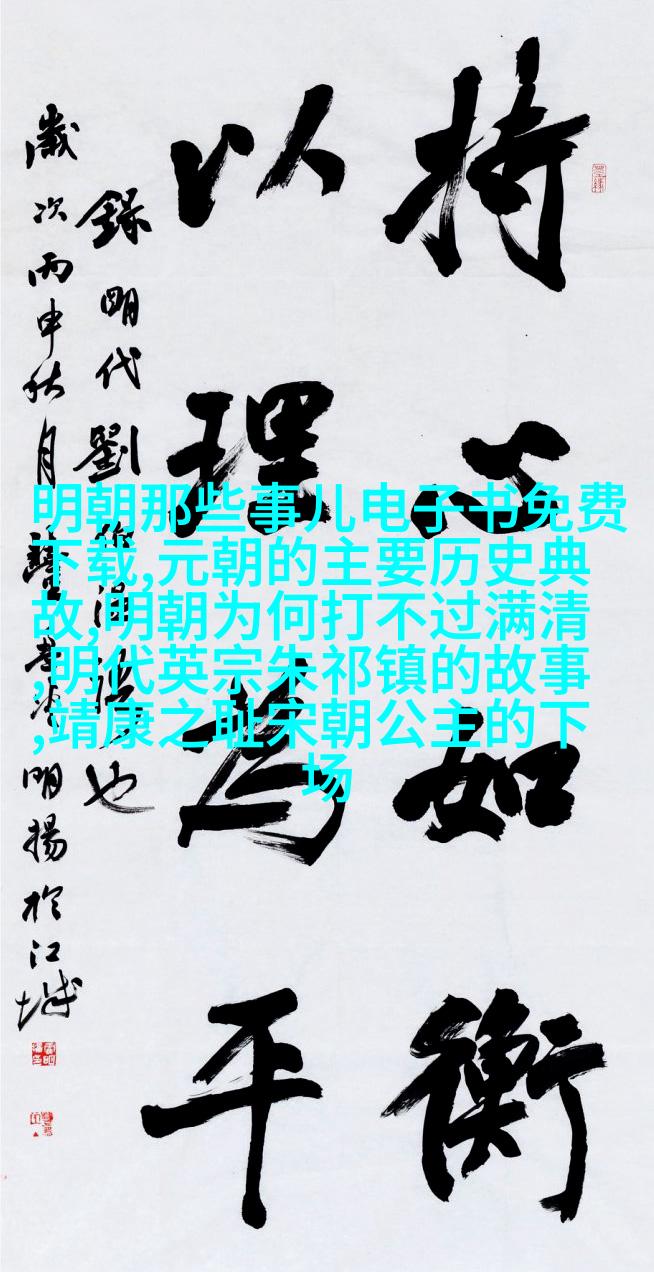 持心如衡
以理为平
錄明代劉
歲次丙申秋月
明揚於江城
明朝那些事儿电子书免费
下载,元朝的主要历史典
故,明朝为何打不过满清
,明代英宗朱祁镇的故事
,靖康之耻宋朝公主的下
场